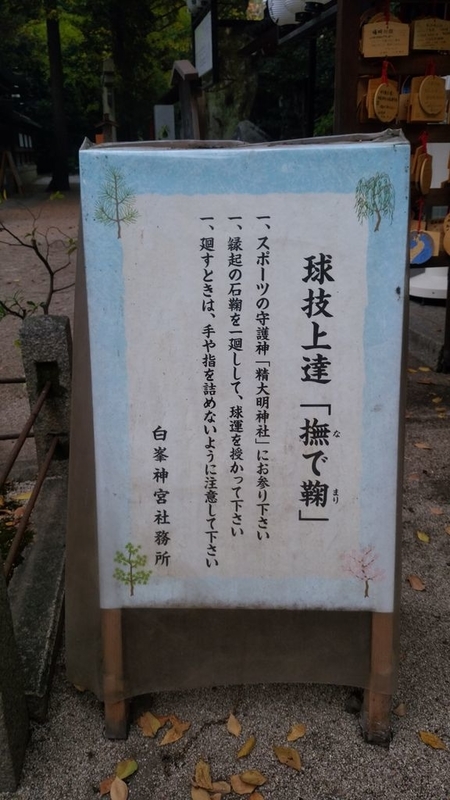 球技上達「撫で鞠」
な
まり
一、スポーツの守護神「精大明神社」にお参り下さい
一、縁起の石鞠を一廻しして、球運を授かって下さい
一、廻すときは、手や指を詰めないように注意して下さい
白峯神宮社務所